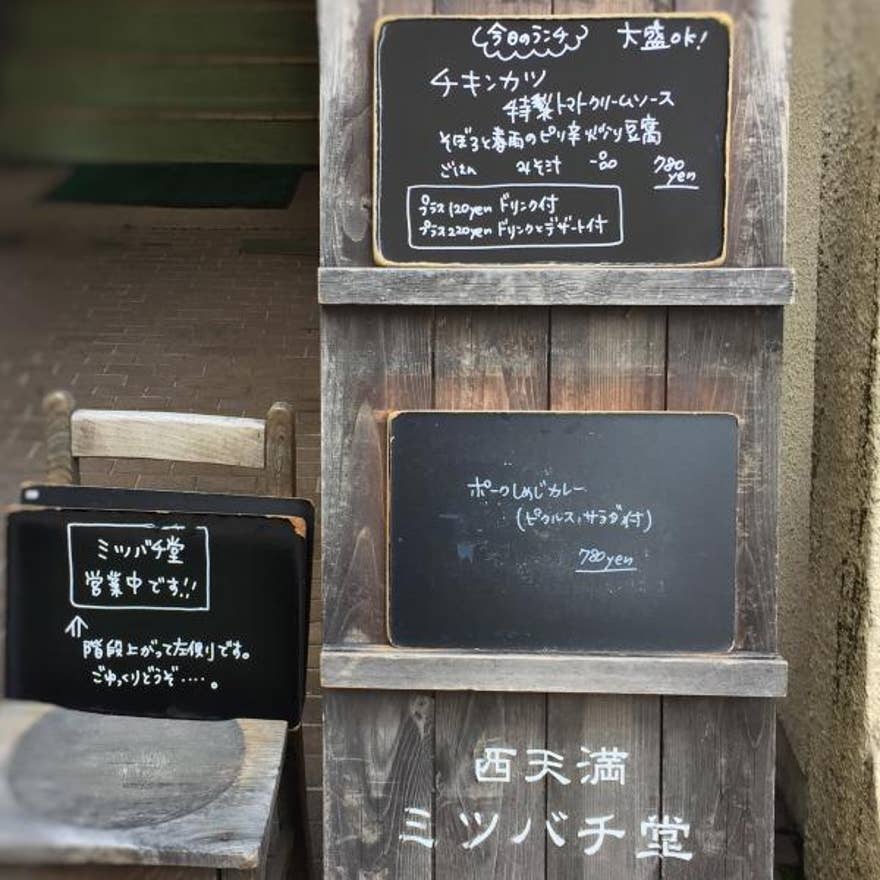 今日のランチ 大盛OK!
チキンカツ
特製トマトクリームソース
そぼろと春雨のピリ辛炒り豆腐
ごはん みそ汁 一品 780yen
プラス120yen ドリンク付
プラス220yen ドリンクとデザート付
ポークしめじカレー
(ピクルス、サラダ付)
780yen
ミツバチ堂
営業中です!!
↑
階段上がって左側です。
ごゆっくりどうぞ····。
西天満
ミツバチ堂